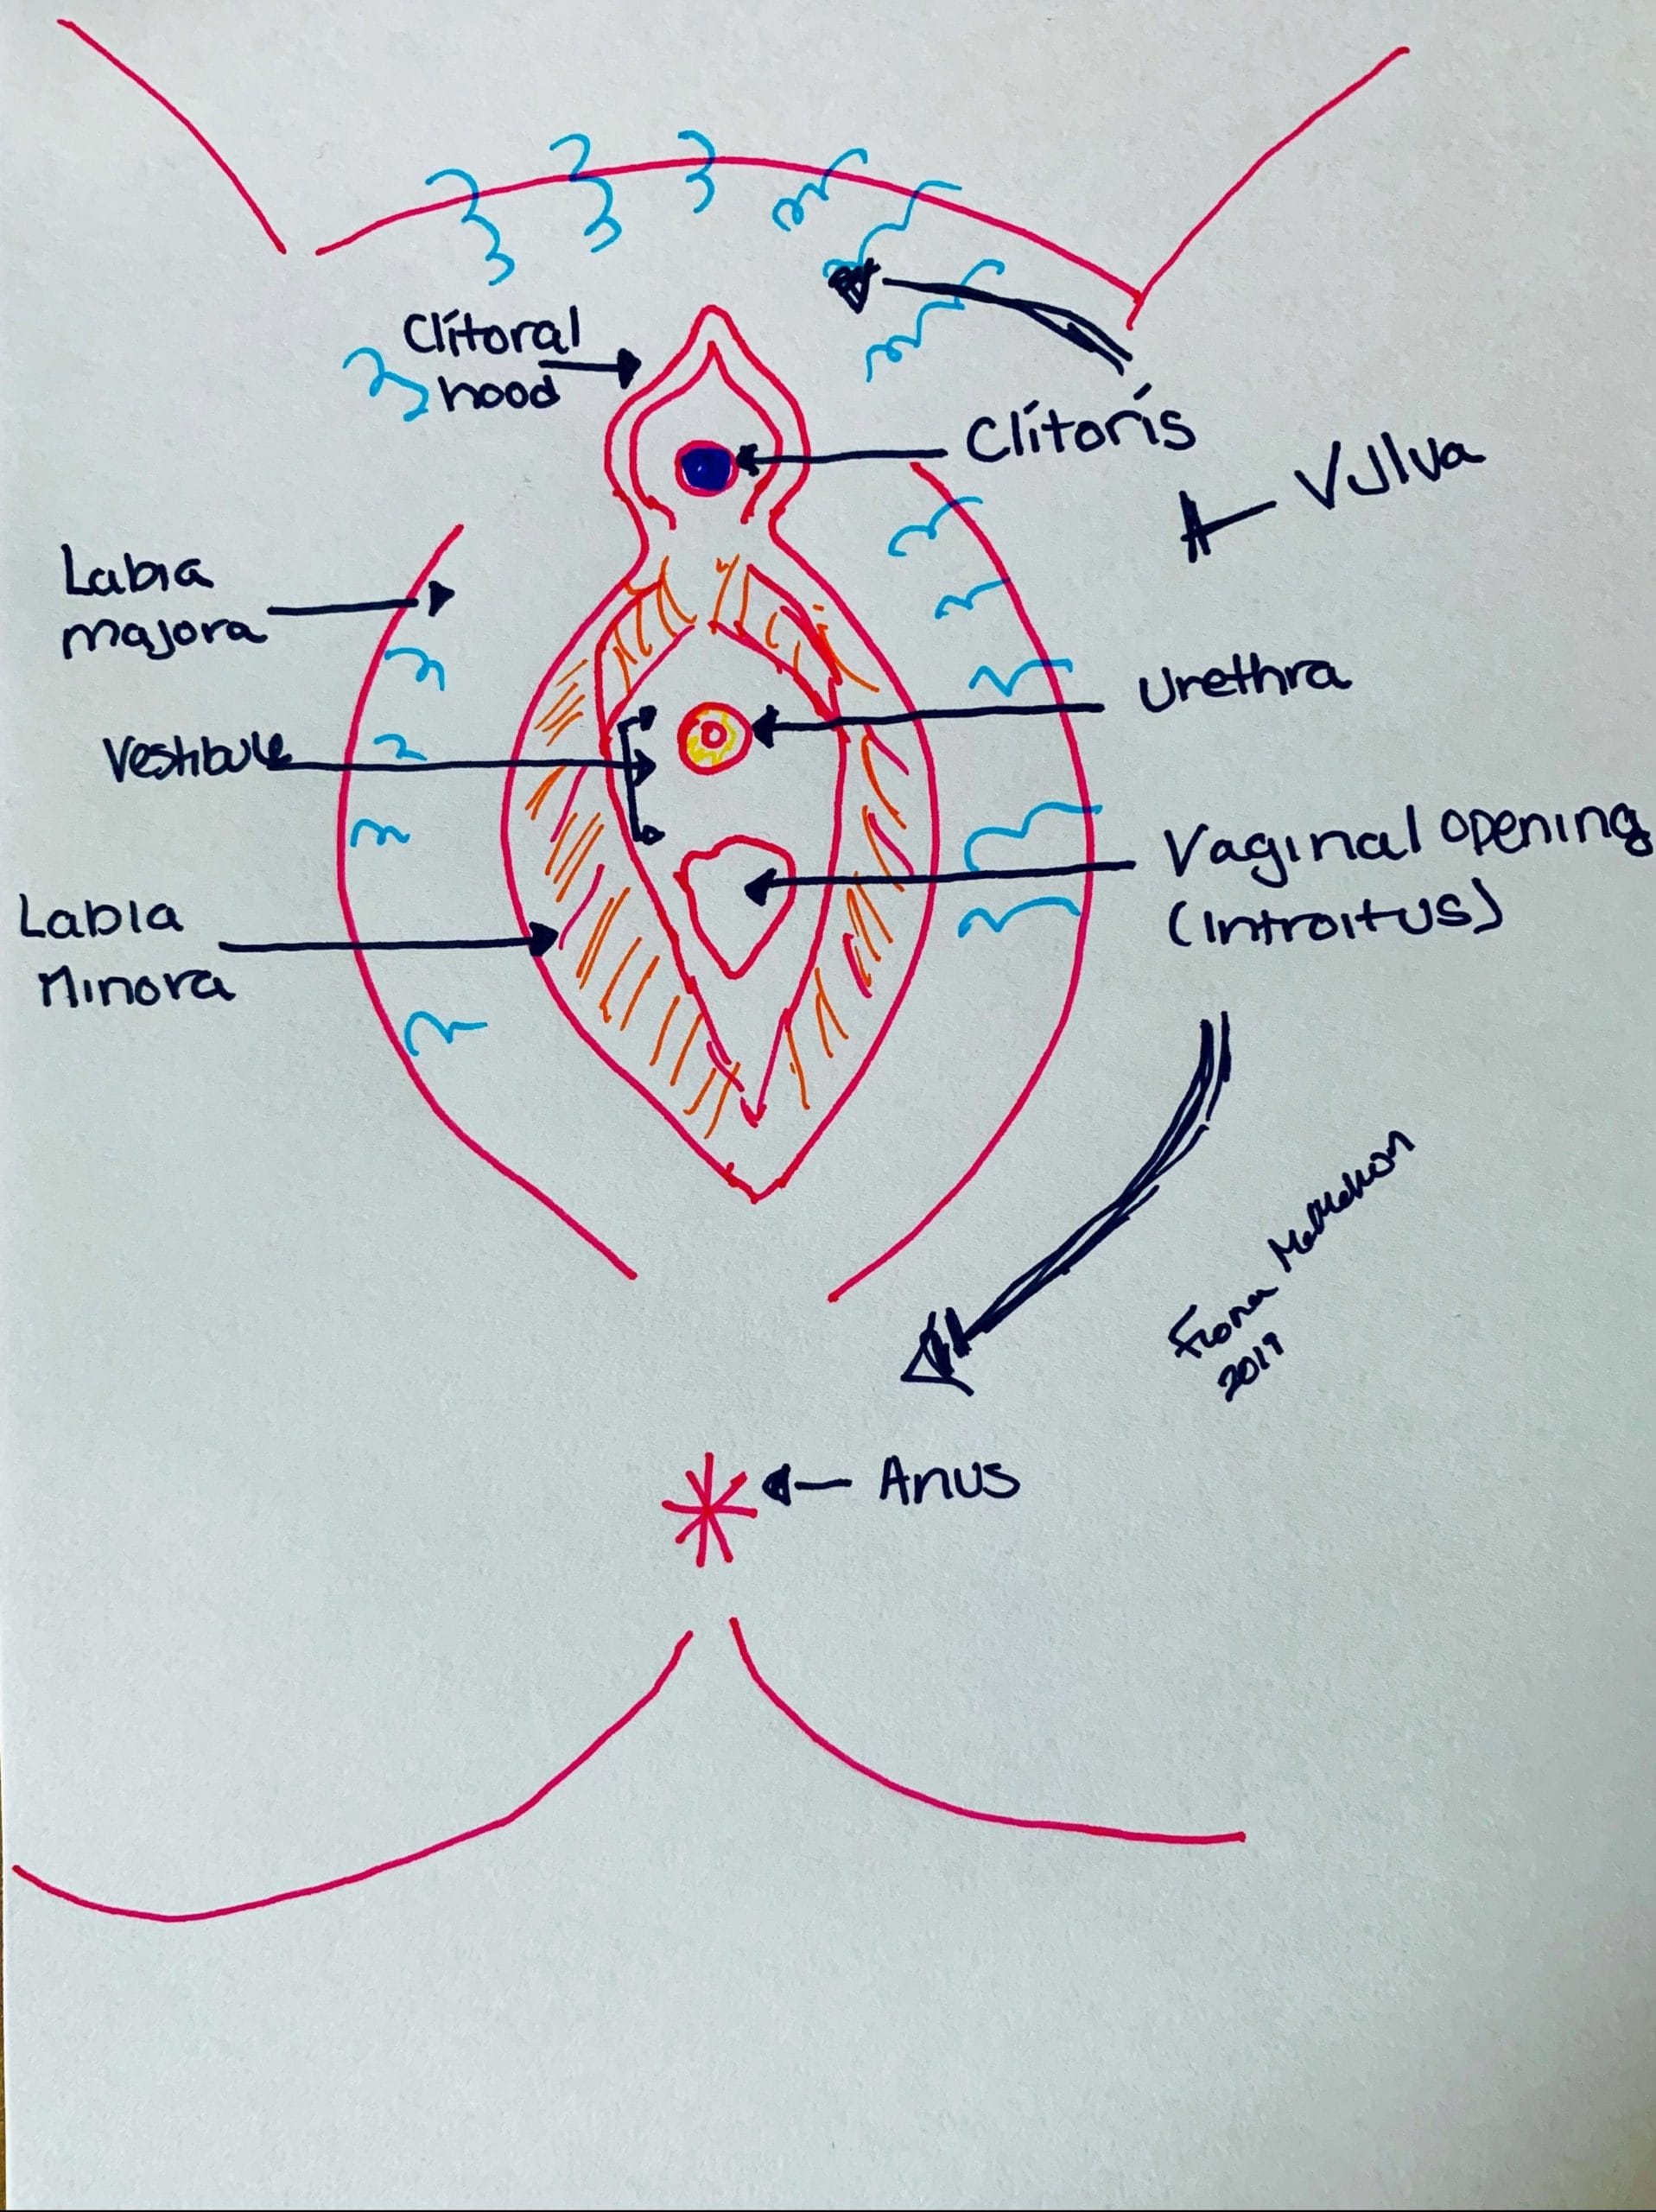 Clitoral
hood
Clitoris
Vulva
Labia
majora
Urethra
Vestibule
Vaginal opening
(introitus)
Labia
Minora
Fiona
2019
Anus